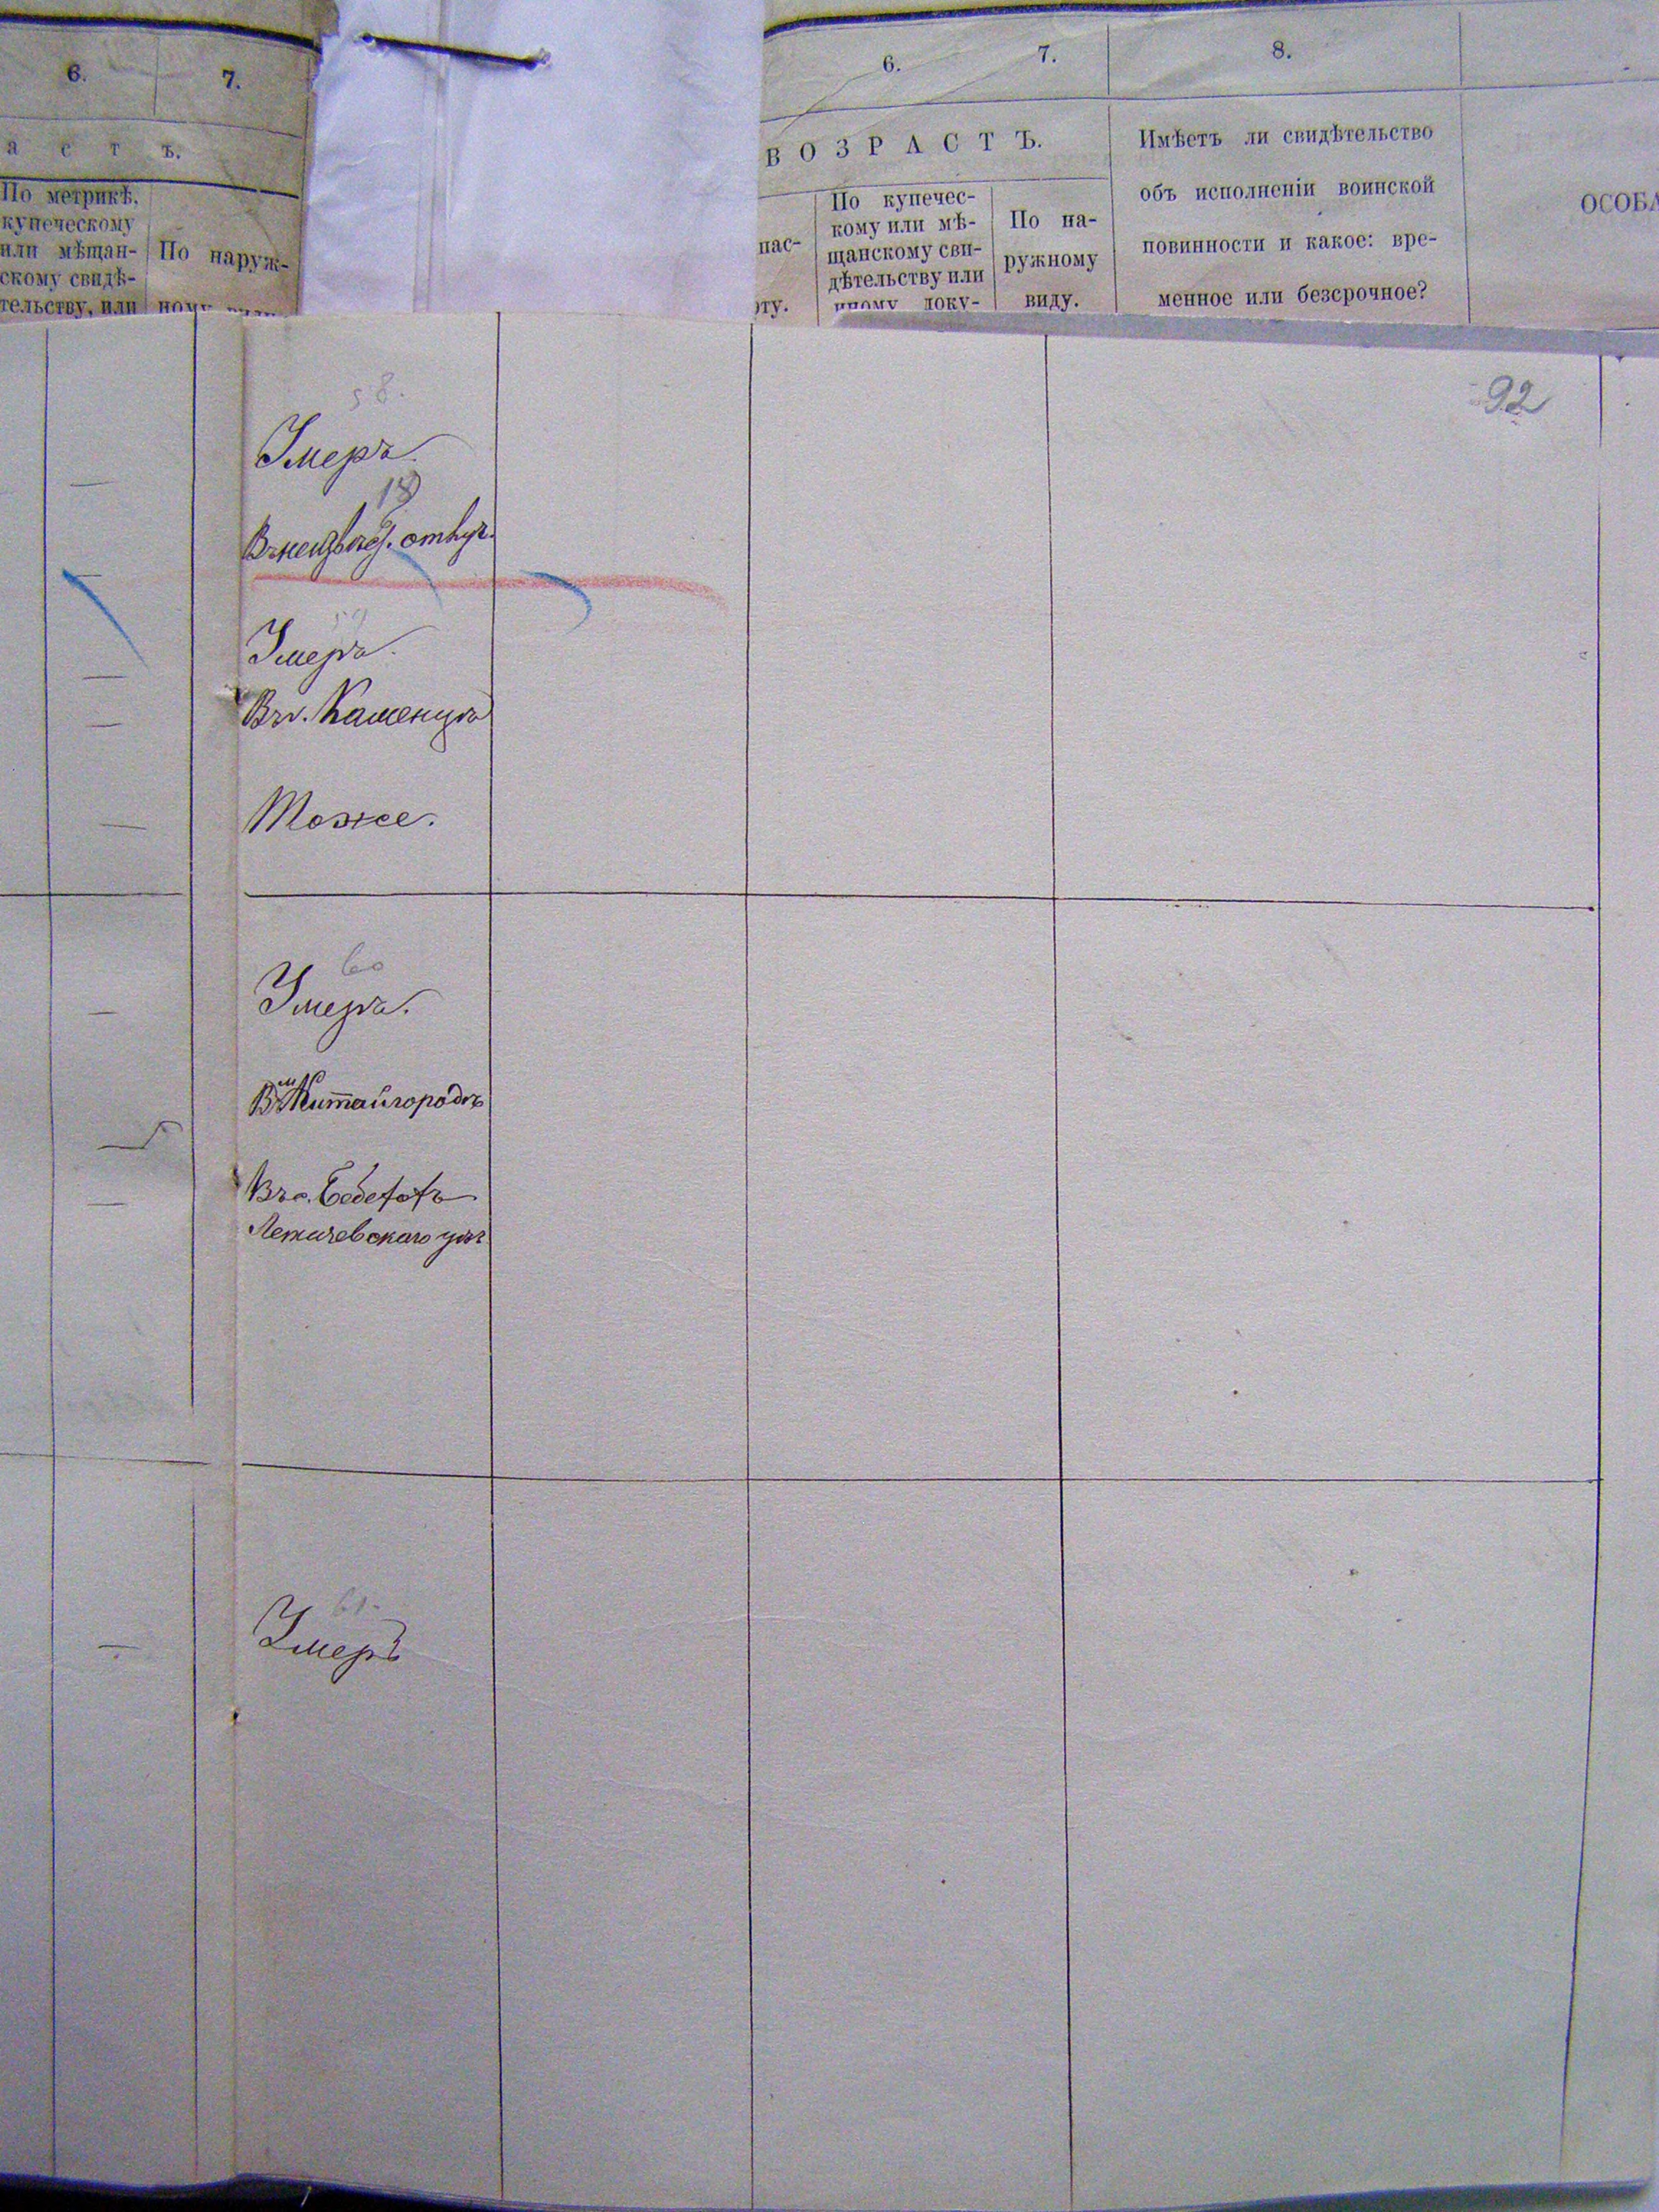 6. 7.
а с т ъ.
По метрикѣ,
купеческому
или мѣщан-
скому свидѣ-
тельству, или
По наруж-
ному виду
6. 7. 8.
ВОЗРАСТЪ.
пас-
рту.
По купечес-
кому или мѣ-
щанскому сви-
дѣтельству или
иному доку-
По на-
ружному
виду.
Имѣетъ ли свидѣтельство
объ исполненіи воинской
повинности и какое: вре-
менное или безсрочное?
ОСОБА
92
58.
Умеръ.
18
Въ неизвѣс. отлуч.
59
Умеръ.
Въ г. Каменцѣ
Тоже.
60
Умеръ.
Въ м Китайгородѣ
Въ с.
Летичевскаго уѣз.
61.
Умеръ